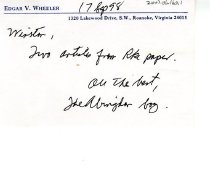 EDGAR V. WHEELER
17 Sep 98
1320 Lakewood Drive, S.W., Roanoke, Virginia 24015
Winston,
Two articles from Rke paper.
All the best,
The Abingdon boy.